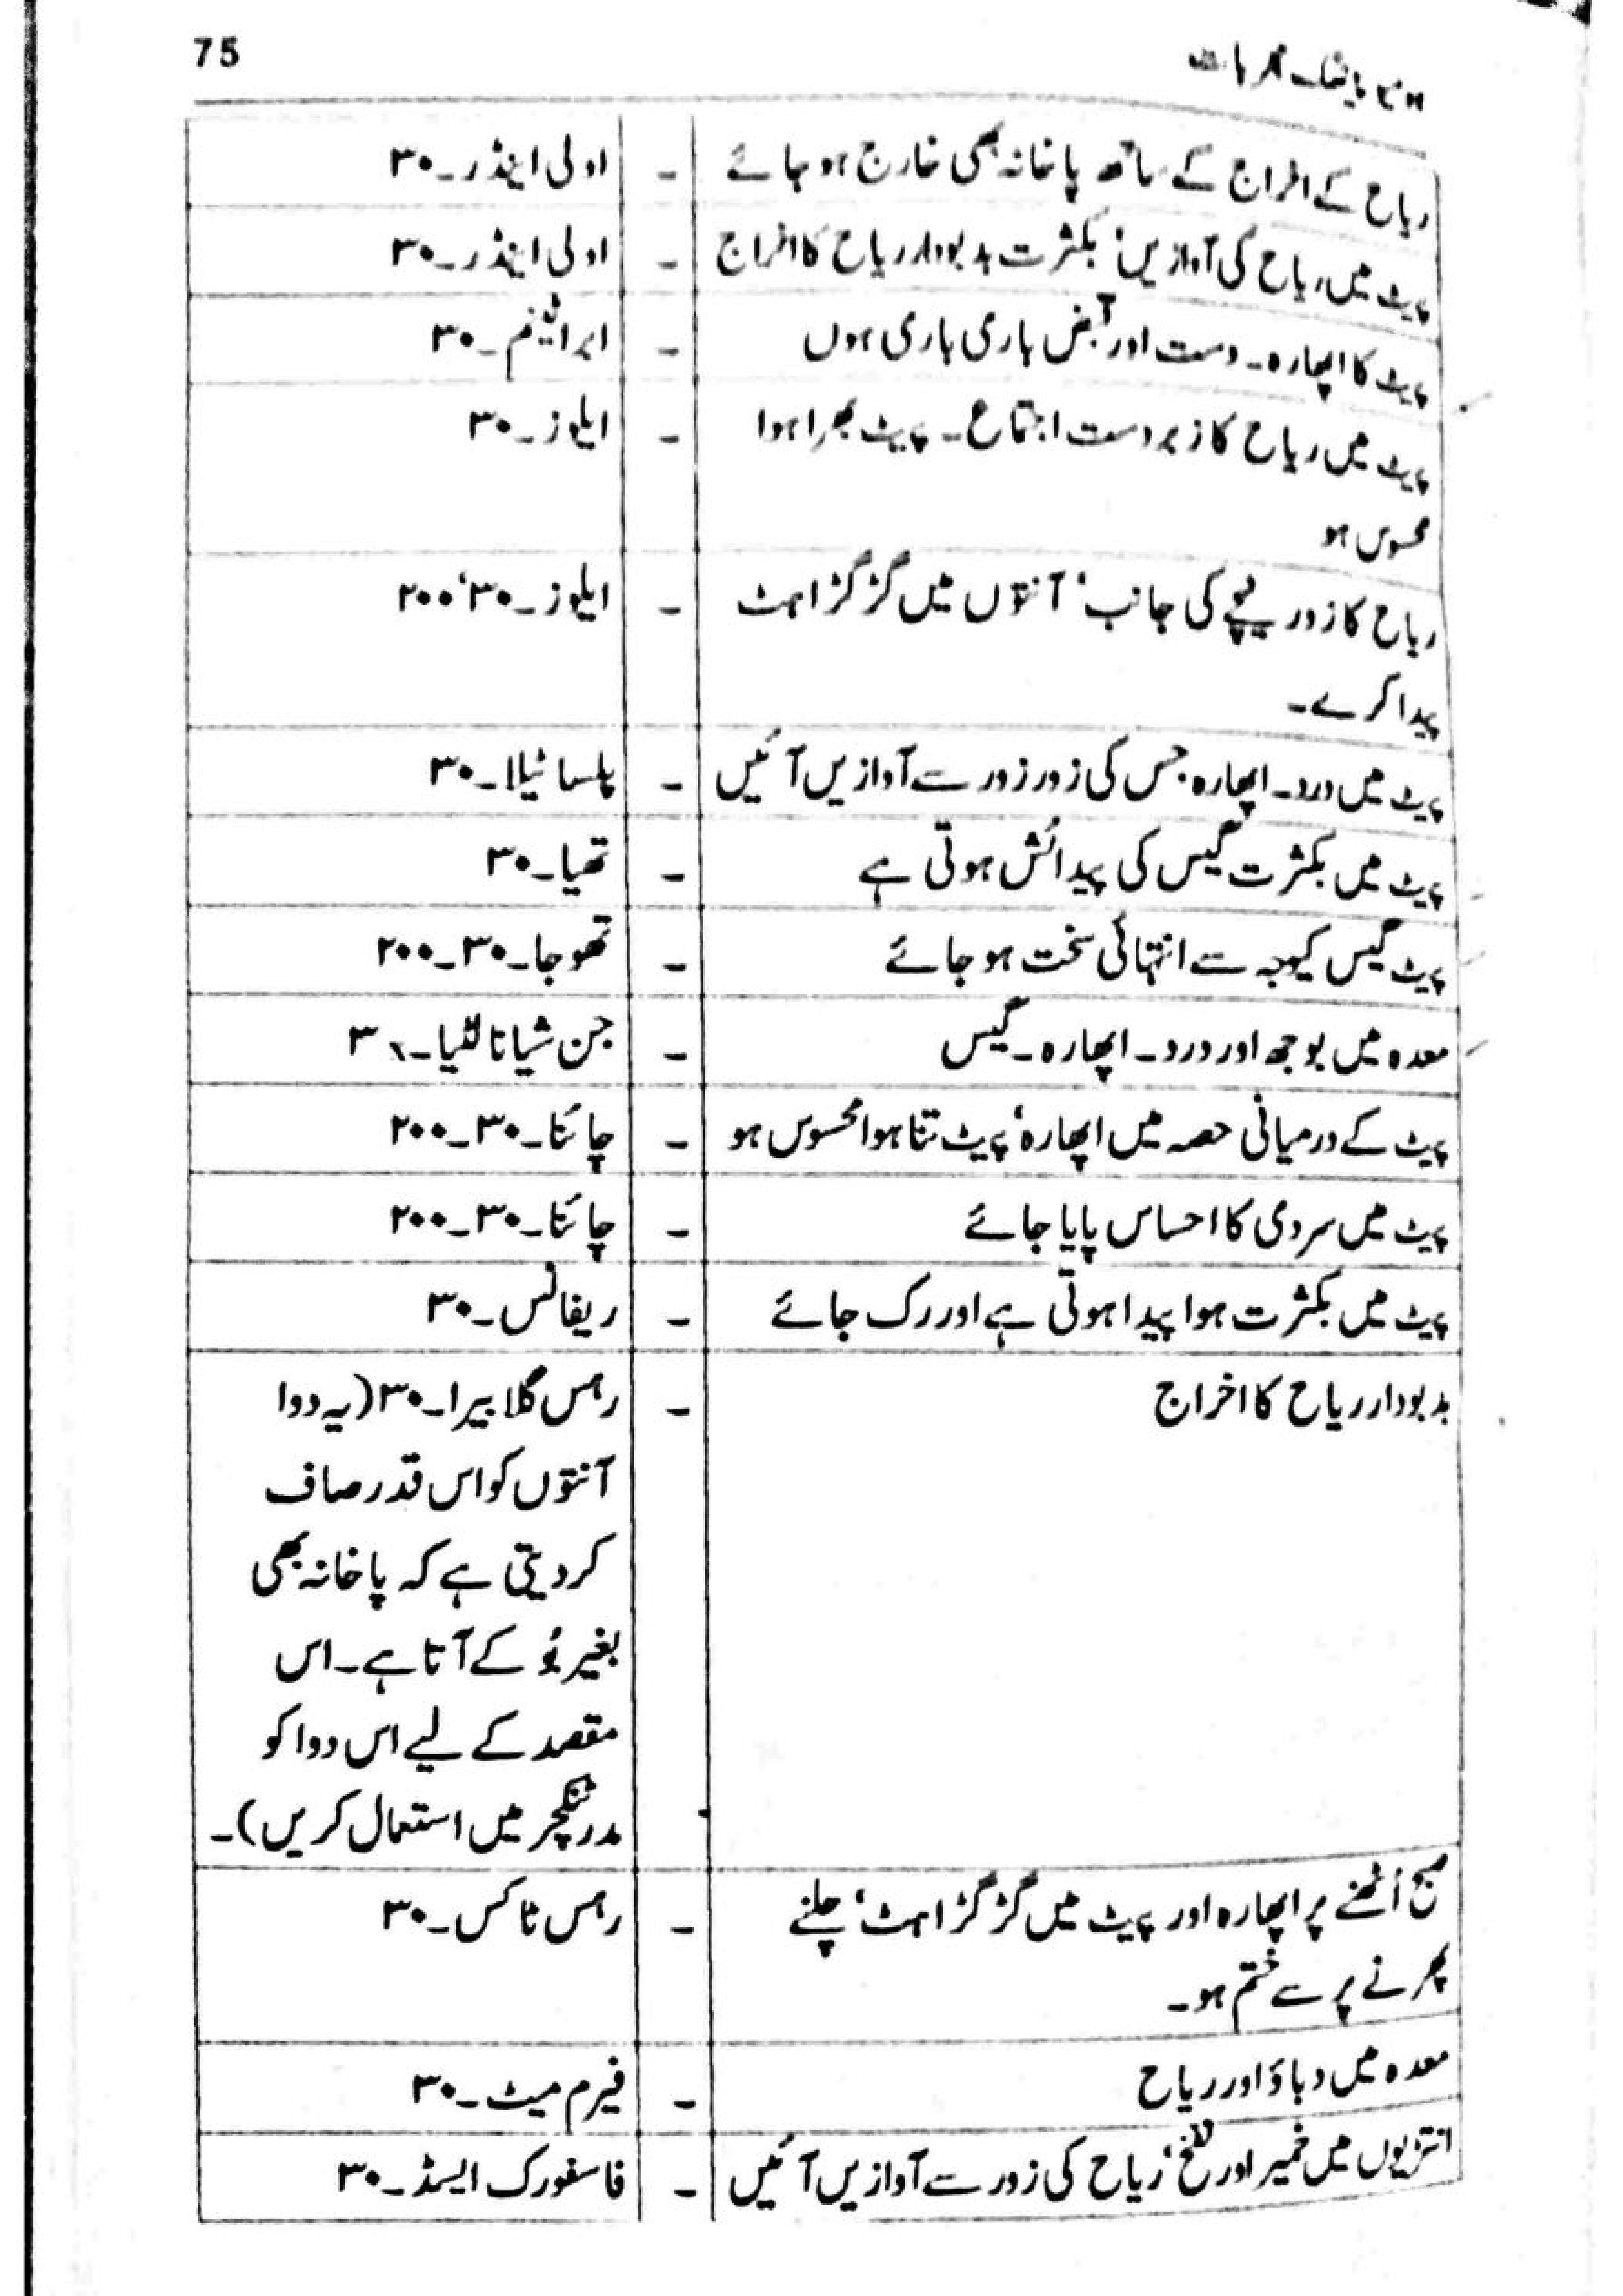 75
ریاح کے اخراج کے ساتھ پاخانہ بھی خارج ہو جائے - اولی اینڈر۔۳۰
پیٹ میں ریاح کی آوازیں، بکثرت بدبودار ریاح کا اخراج - اولی اینڈر۔۳۰
پیٹ کا اپھارہ۔ دست اور قبض باری باری ہوں - ۳۰
پیٹ میں ریاح کا زبردست اجتماع۔ پیٹ بھرا ہوا - ایلوز۔۳۰
محسوس ہو
ریاح کا زور نیچے کی جانب، آنتوں میں گڑگڑاہٹ - ایلوز۔۳۰،۲۰۰
پیدا کرے۔
پیٹ میں درد۔ اپھارہ جس کی زور زور سے آوازیں آئیں - پلسا ٹیلا۔۳۰
پیٹ میں بکثرت گیس کی پیدائش ہوتی ہے - تھیا۔۳۰
پیٹ گیس کیوجہ سے انتہائی سخت ہو جائے - تھوجا۔۳۰۔۲۰۰
معدہ میں بوجھ اور درد۔ اپھارہ۔ گیس - جن شیانا لٹیا۔۳۰
پیٹ کے درمیانی حصہ میں اپھارہ، پیٹ تنا ہوا محسوس ہو - چائنا۔۳۰۔۲۰۰
پیٹ میں سردی کا احساس پایا جائے - چائنا۔۳۰۔۲۰۰
پیٹ میں بکثرت ہوا پیدا ہوتی ہے اور رک جائے - ریفانس۔۳۰
بدبودار ریاح کا اخراج - رہس گلابیرا۔۳۰ (یہ دوا
آنتوں کو اس قدر صاف
کر دیتی ہے کہ پاخانہ بھی
بغیر بُو کے آتا ہے۔ اس
مقصد کے لیے اس دوا کو
مدر ٹنکچر میں استعمال کریں)۔
صبح اُٹھنے پر اپھارہ اور پیٹ میں گڑگڑاہٹ، چلنے - رہس ٹاکس۔۳۰
پھرنے پر سے ختم ہو۔
معدہ میں دباؤ اور ریاح - فیرم میٹ۔۳۰
انتڑیوں میں خمیر اور نفخ، ریاح کی زور سے آوازیں آئیں - فاسفورک ایسڈ۔۳۰